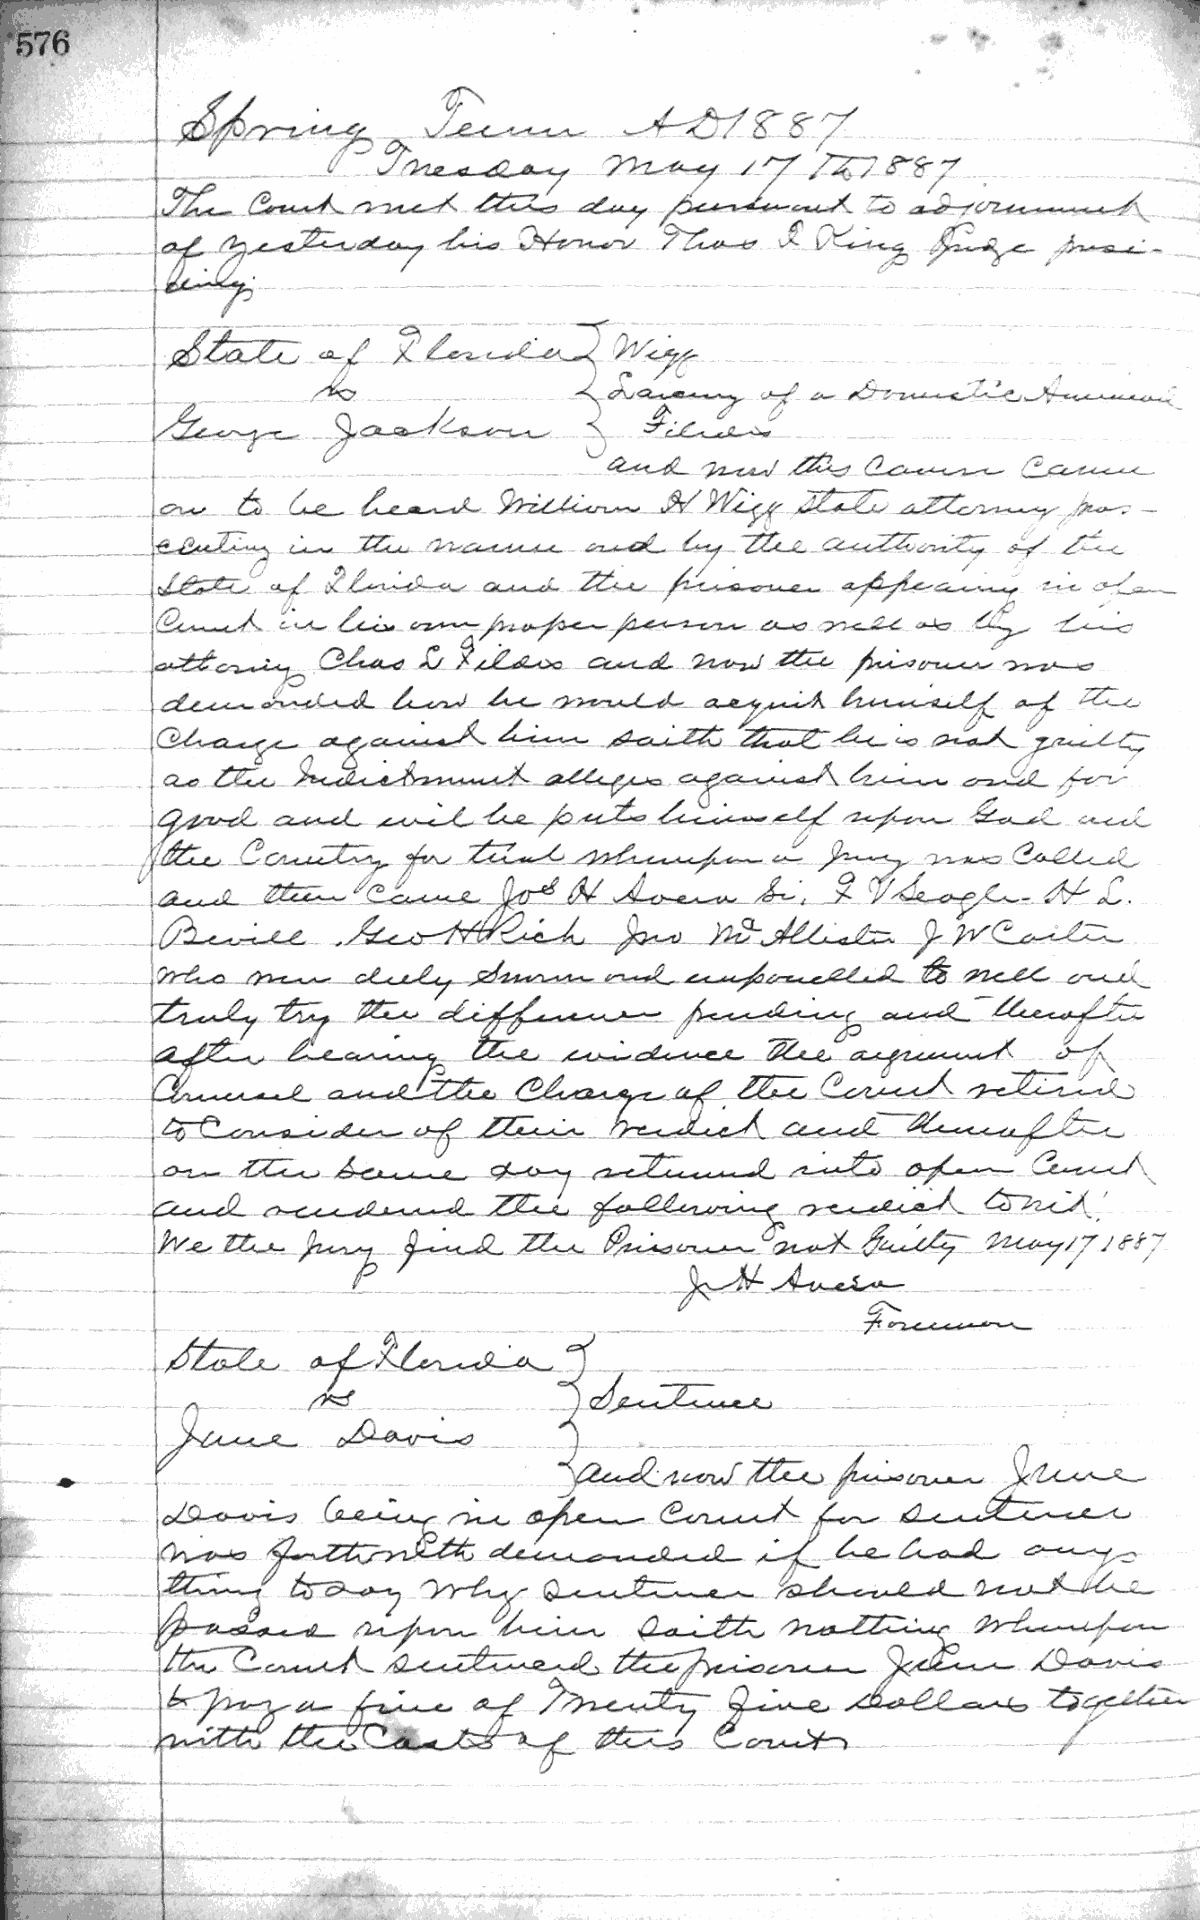 576
Spring Term AD 1887
Tuesday May 17th 1887
The Court met this day pursuant to adjournment
of yesterday his Honor Thos F King Judge presi-
ding
State of Florida } Wigg
vs } Larceny of a Domestic Animal
George Jackson } Fildes
and now this Cause Came
on to be heard William H Wigg State attorney pros-
ecuting in the name and by the authority of the
State of Florida and the prisoner appearing in open
Court in his own proper person as well as by his
attorney Chas L Fildes and now the prisoner was
demanded how he would acquit himself of the
Charge against him saith that he is not guilty
as the Indictment alleges against him and for
good and evil he puts himself upon God and
the Country for trial whereupon a Jury was Called
and then Came Jos H Avera Sr. F V Seagle - H L.
Bevill Geo H Rich Jno McAllister J W Carter
who were duly Sworn and empanelled to well and
truly try the difference pending and thereafter
after hearing the evidence the argument of
Counsel and the Charge of the Court retired
to Consider of their verdict and thereafter
on the same day returned into open Court
and rendered the following verdict to wit:
We the Jury find the Prisoner not Guilty May 17 1887
J H Avera
Foreman
State of Florida }
vs } Sentence
June Davis }
and now the prisoner June
Davis being in open Court for Sentence
was forthwith demanded if he had any
thing to say why Sentence should not be
passed upon him Saith nothing Whereupon
the Court sentenced the prisoner June Davis
to pay a fine of Twenty five Dollars together
with the Costs of this Court